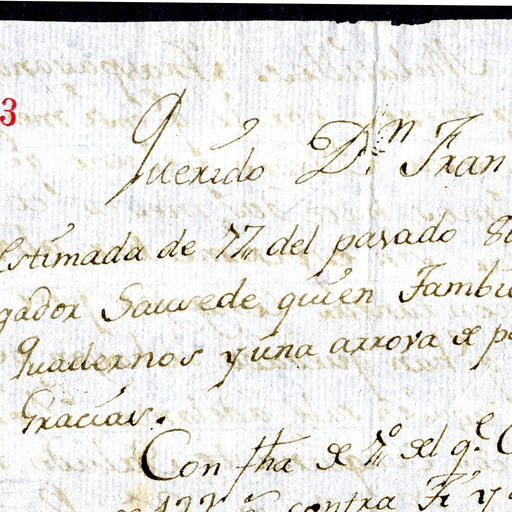 3
Querido D.n Fran
estimada de 22 del pasado 8
gador Sauvede quien Tambie
Quadernos y una arrova de p
Gracias.
Con fha de 2º del q.e C
contra Ti y